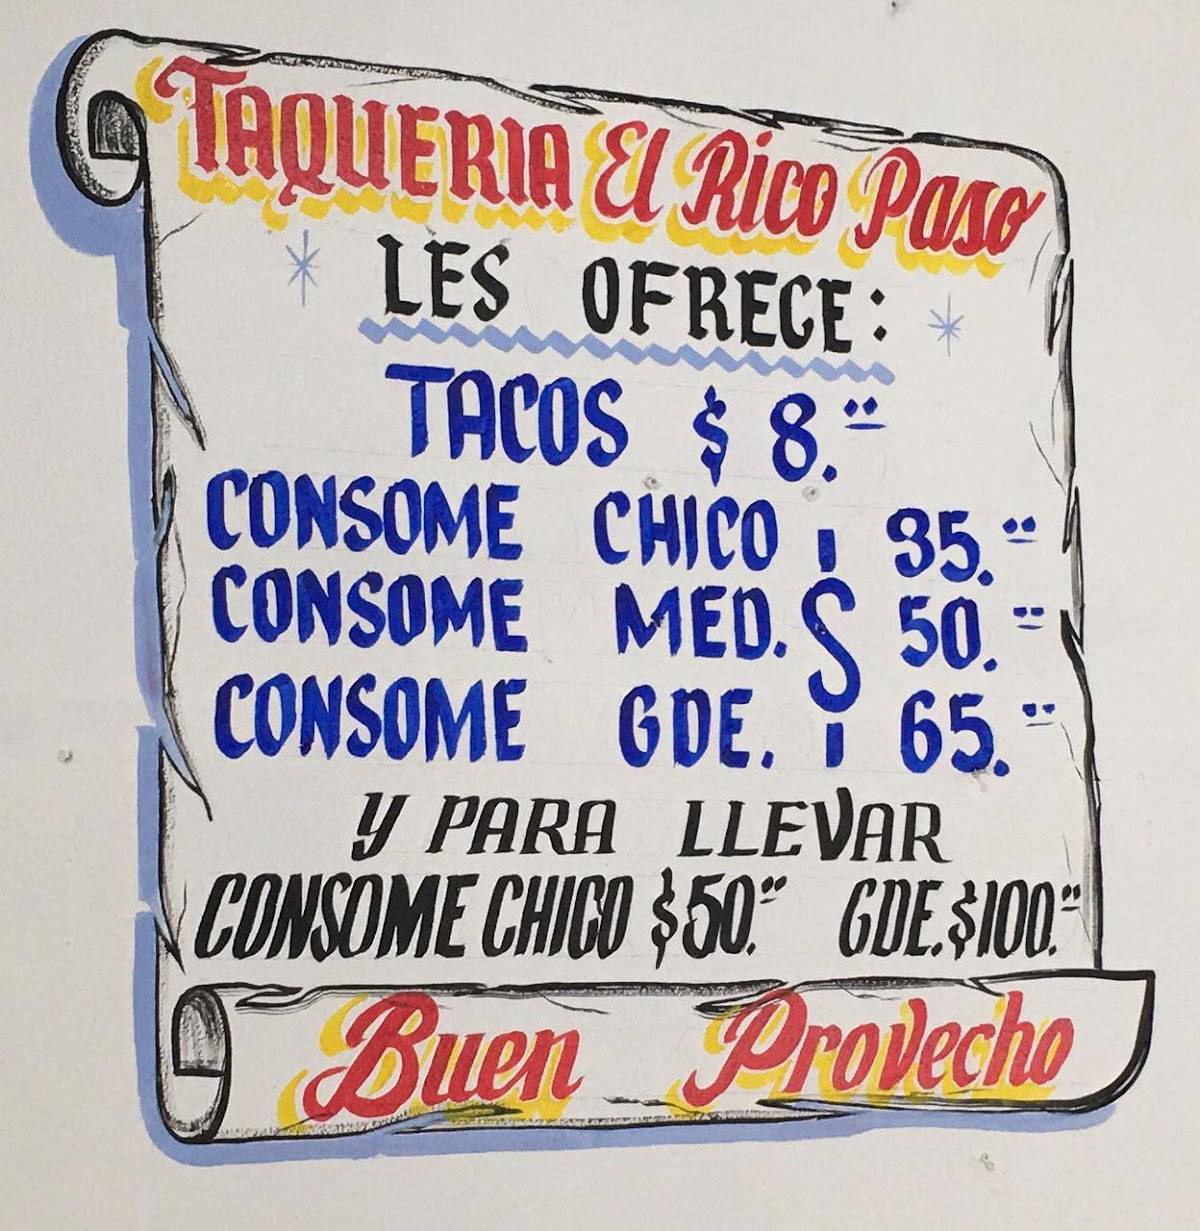 TAQUERIA El Rico Paso
LES OFRECE:
TACOS $ 8.
CONSOME CHICO 35.
CONSOME MED. $ 50.
CONSOME GDE. 65.
Y PARA LLEVAR
CONSOME CHICO $50. GDE. $100.
Buen Provecho